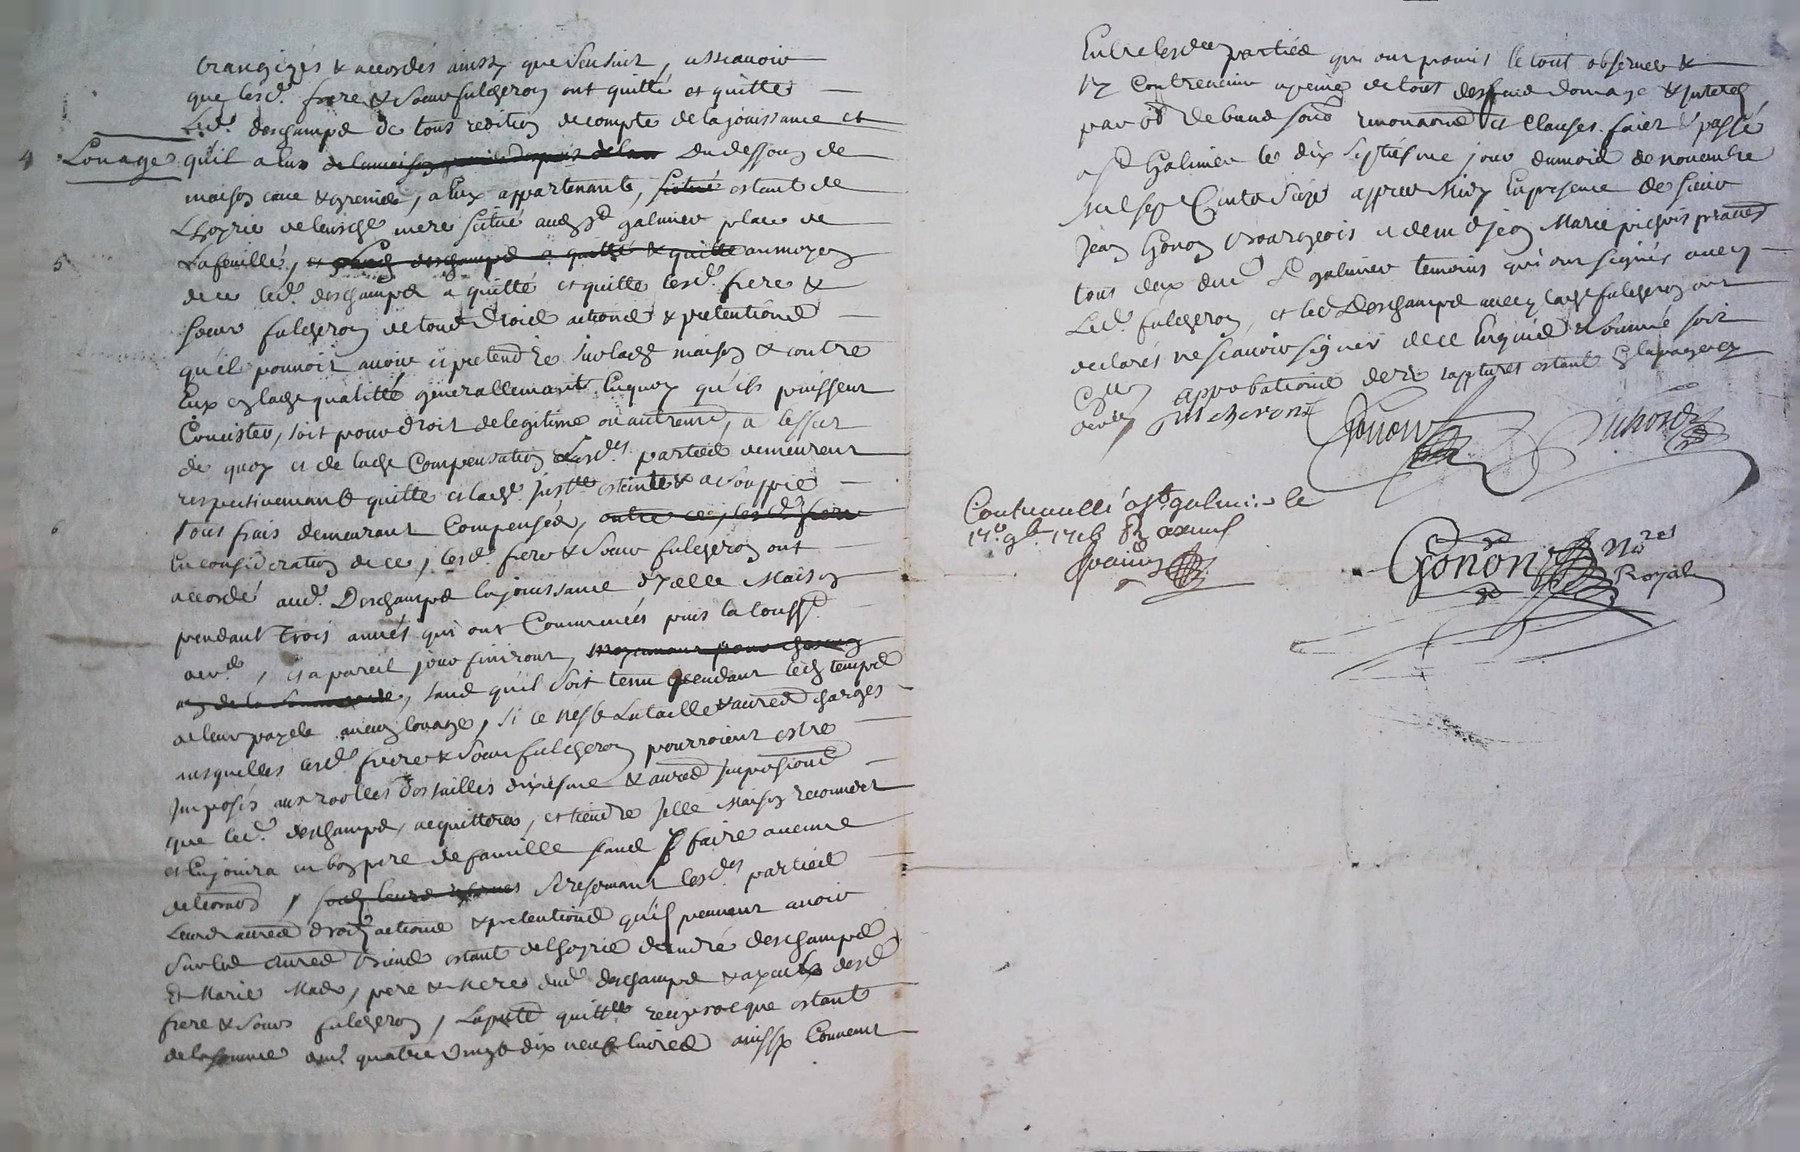 transigés & accordés ainsy que sensuit, asscavoir
que lesd. frere & soeur fulcheron ont quitté et quitte
Led. deschamps de tous redition de compte de la jouissance et
Louage qu'il a eux de la maison Du dessous de
maison cave & grenier, a Eux appartenante, scitué estant de
L'hoyrie de leursd. mere scitué aud. St galmier place de
Lafeuille, & led. deschamps a quitté & quitte au moyen
de ce led. deschamps a quitté et quitte lesd. frere &
soeur fulcheron de tous droits actions & pretentions
qu'il pouvoit avoir et pretendre sur lad. maison & contre
Eux en lad. qualitté generallemant Enquoy qu'ils puissent
Concister, soit pour droit de legitime ou autremt, a lesset
de quoy et de lad. Compensation Lesdes. parties demeurent
respectivemant quitte et lad. Justce esteinte & assouppie
tous frais demeurant Compensés, outre ce, lesd. frere
En consideration de ce, lesd. frere & soeur fulcheron ont
accordé aud. Deschamps la jouissance d'icelle Maison
pendant trois annés qui ont Commencées puis la touss.
der, et a pareil jour finiront, moyennant pour chacun
an de la somme de, sans qu'il soit tenu pendant led. temps
de leur payer aucun louage, si ce n'est La taille & autres charges
ausquelles lesd. frere & soeur fulcheron pourroient estre
Imposés aux roolles des tailles dixiesme & autres Impositions
que led. deschamps, acquittera, et tiendra Jelle Maison recouverte
et En jouira en bon pere de famille sans y faire aucune
deterioon, sous leurs Se reservant lesdes partiés
Leurs autres droits actions & pretentions qu'ils peuvent avoir
Sur les autres biens estant de l'hoyrie d'andré deschamps
Et Marie Mads, pere & Mere dud. deschamps & ayeulx desd.
frere & soeur fulcheron, La pnte quittce reciproque estant
de la somme de quatre vingt dix neuf livres ainssy Convenut
Entre lesdes partiés qui ont promis le tout observer &
ny Contrevenir a peine de tous despens domages & Interets
par obon de bans sons renonaons et Clauses. fait & passé
a St Galmier le dix septiesme jour du mois de novembre
Mil sept Cents Seize appres Midy En presence de sieur
Jean Gonon Bourgeois et de m Jean Marie pichois praticien
tous deux dud. St galmier temoins qui ont signés avec
Led. fulcheron, et led. Deschamps avec lad. fulcheron ont
declarés ne scavoir signer de ce Enquis & sommé soit
approbations de ratures estant En la page
fulcheron
Gonon Pichois
Controuellé a St galmier le
17e 9bre 1716
Gonon Nore Royal